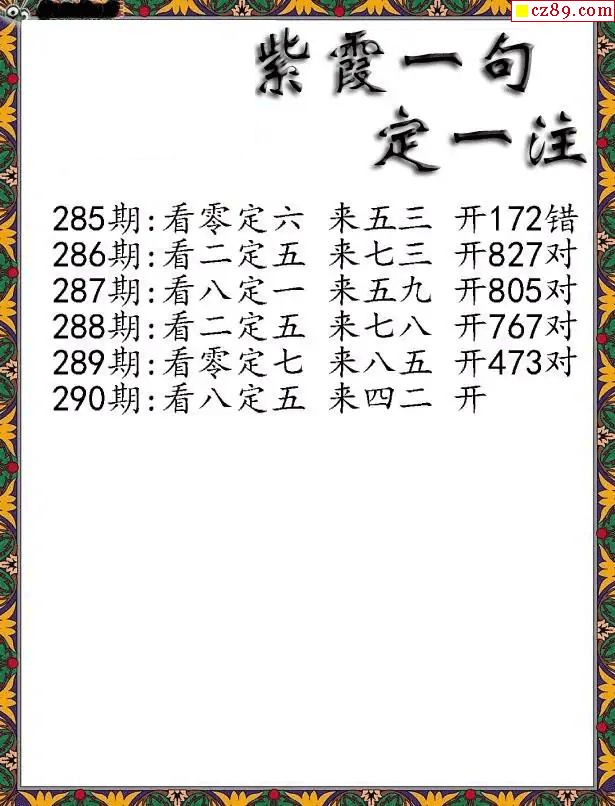 cz89.com
紫霞一句
定一注
285期:看零定六 来五三 开172错
286期:看二定五 来七三 开827对
287期:看八定一 来五九 开805对
288期:看二定五 来七八 开767对
289期:看零定七 来八五 开473对
290期:看八定五 来四二 开